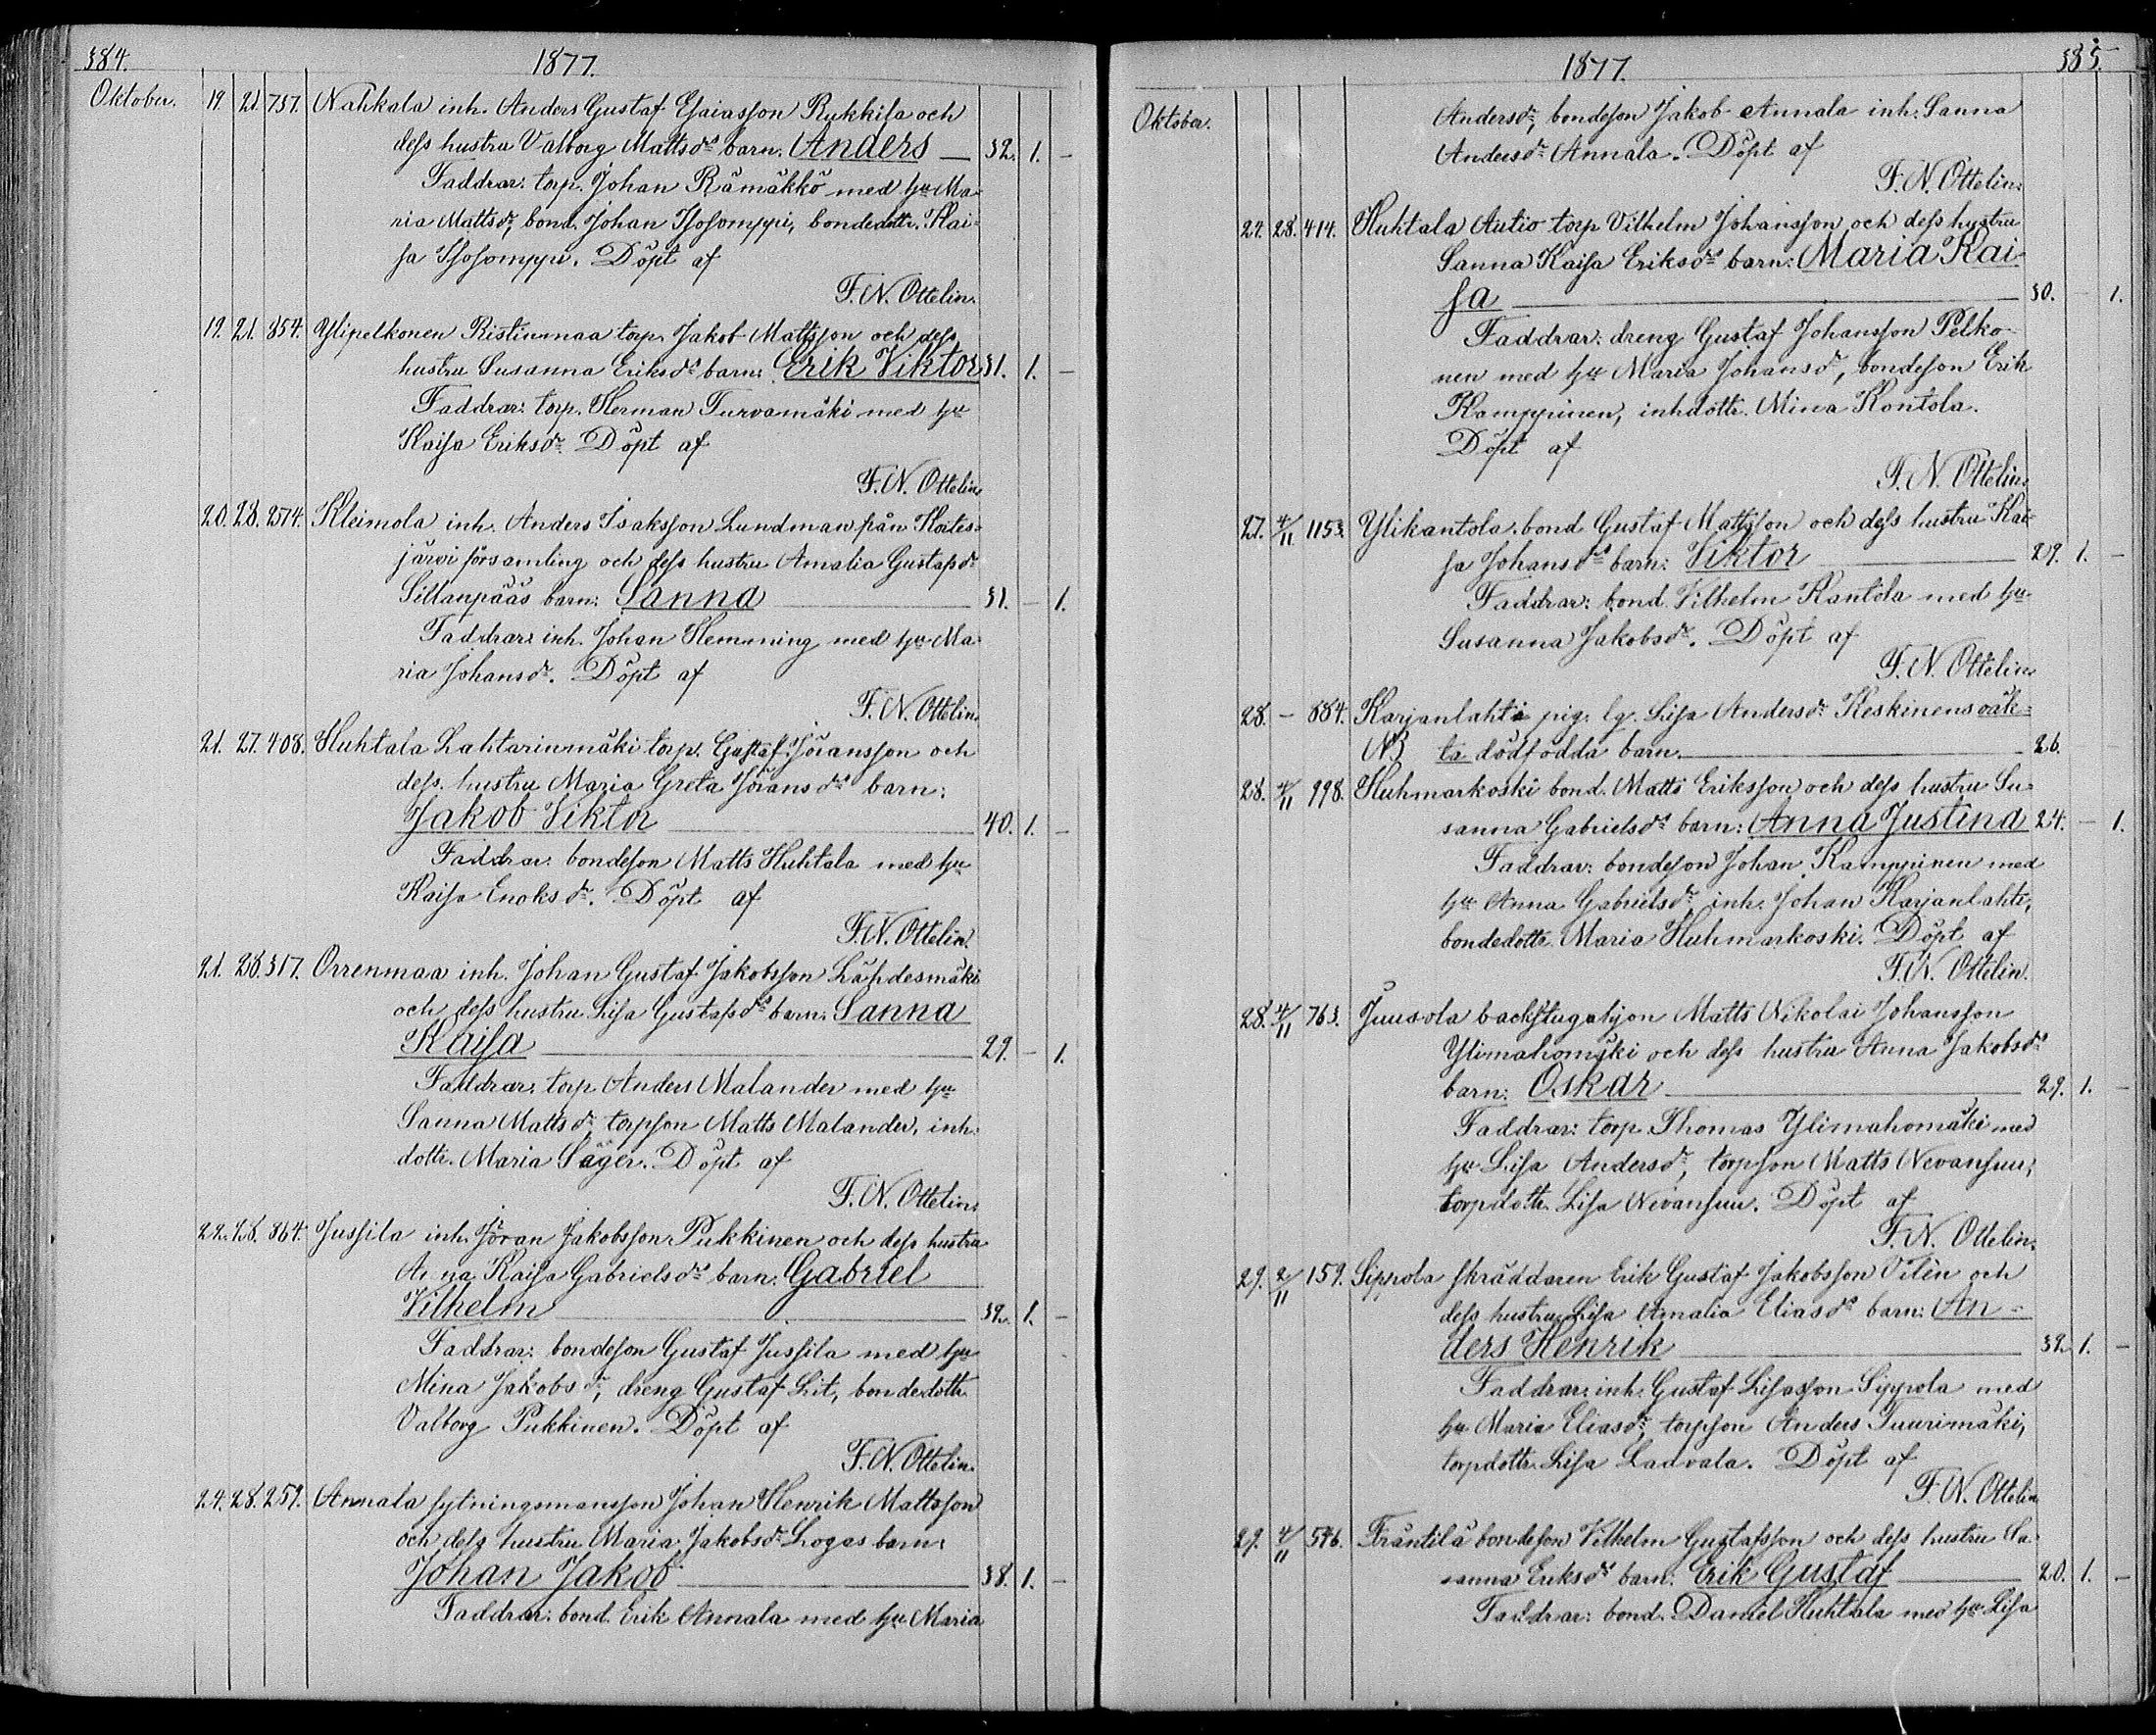 384.
1877.
Oktober. 19. 21. 737. Nahkala inh. Anders Gustaf Esaiasson Rukkila och
dess hustru Valborg Mattsdrs barn: Anders — 32. 1. –
Faddrar: torp. Johan Rämäkkö med hu Ma-
ria Mattsdr, bond. Johan Isosomppi, bondedottr. Kai-
sa Isosomppi. Döpt af
F. N. Ottelin.
19. 21. 854. Ylipelkonen Ristinmaa torp. Jakob Mattsson och dess
hustru Susanna Eriksdrs barn: Erik Viktor 31. 1. –
Faddrar: torp. Herman Turvamäki med hu
Kaisa Eriksdr. Döpt af
F. N. Ottelin.
20. 28. 2574. Kleimola inh. Anders Isaksson Lundman från Koites-
järvi församling och dess hustru Amalia Gustafsdr
Sillanpääs barn: Sanna — 31. – 1.
Faddrar: inh. Johan Hemming med hu Ma-
ria Johansdr. Döpt af
F. N. Ottelin.
21. 27. 408. Huhtala Lahtarinmäki torp. Gustaf Jöransson och
dess hustru Maria Greta Göransdrs barn:
Jakob Viktor — 40. 1. –
Faddrar: bondeson Matts Huhtala med hu
Kaisa Enoksdr. Döpt af
F. N. Ottelin.
21. 28. 317. Orrenmaa inh. Johan Gustaf Jakobsson Lähdesmäki
och dess hustru Lisa Gustafsdrs barn: Sanna
Kaisa — 29. – 1.
Faddrar: torp. Anders Malander med hu
Sanna Mattsdr, torpson Matts Malander, inh.
dottr. Maria Säger. Döpt af
F. N. Ottelin.
22. 28. 864. Jussila inh. Jöran Jakobsson Pukkinen och dess hustru
Anna Kaisa Gabrielsdrs barn: Gabriel
Vilhelm — 32. 1. –
Faddrar: bondeson Gustaf Jussila med hu
Mina Jakobsdr, dreng Gustaf Lit, bondedottr.
Valborg Pukkinen. Döpt af
F. N. Ottelin.
24. 28. 259. Annala sytningsmansson Johan Henrik Mattsson
och dess hustru Maria Jakobsdr Logas barn:
Johan Jakob — 38. 1. –
Faddrar: bond. Erik Annala med hu Maria
1877.
385.
Oktober. Andersdr, bondeson Jakob Annala inh. Sanna
Andersdr Annala. Döpt af
F. N. Ottelin.
27. 28. 414. Huhtala Autio torp. Vilhelm Johansson och dess hustru
Sanna Kaisa Eriksdrs barn: Maria Kai-
sa — 30. – 1.
Faddrar: dreng Gustaf Johansson Pelko-
nen med hu Maria Johansdr, bondeson Erik
Kamppinen, inhdottr. Mina Kontola.
Döpt af
F. N. Ottelin.
27. 4/11 1153. Ylikantola bond. Gustaf Mattsson och dess hustru Kai-
sa Johansdrs barn: Viktor — 29. 1. –
Faddrar: bond. Vilhelm Kantola med hu
Susanna Jakobsdr. Döpt af
F. N. Ottelin.
28. – 884. Karjanlahti pig. lg. Lisa Andersdr Keskinens oäk-
NB ta dödfödda barn. — 26.
28. 4/11 998. Huhmarkoski bond. Matts Eriksson och dess hustru Su-
sanna Gabrielsdrs barn: Anna Justina 24. – 1.
Faddrar: bondeson Johan Kamppinen med
hu Anna Gabrielsdr, inh. Johan Karjanlahti,
bondedottr. Maria Huhmarkoski. Döpt af
F. N. Ottelin.
28. 4/11 763. Juusola backstuguhjon Matts Nikolai Johansson
Ylimahomäki och dess hustru Anna Jakobsdrs
barn: Oskar — 29. 1. –
Faddrar: torp. Thomas Ylimahomäki med
hu Lisa Andersdr, torpson Matts Nevansuu,
torpdottr. Lisa Nevansuu. Döpt af
F. N. Ottelin.
29. 2/11 159. Sippola skräddaren Erik Gustaf Jakobsson Vilén och
dess hustru Lisa Amalia Eliasdrs barn: An-
ders Henrik — 32. 1. –
Faddrar: inh. Gustaf Lisasson Sippola med
hu Maria Eliasdr, torpson Anders Tuurimäki,
torpdottr. Lisa Ladvala. Döpt af
F. N. Ottelin
29. 4/11 546. Fräntilä bondeson Vilhelm Gustafsson och dess hustru Sa-
sanna Eriksdrs barn: Erik Gustaf — 20. 1. –
Faddrar: bond. Daniel Huhtala med hu Lisa